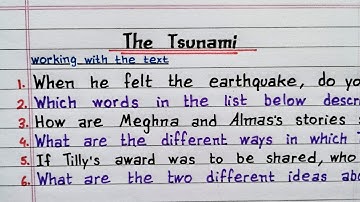 The Tsunami
working with the text
1. When he felt the earthquake, do
2. Which words in the list below
3. How are Meghna and Almas's stories
4. What are the different ways in which
5. If Tilly's award was to be shared, who
6. What are the two different ideas